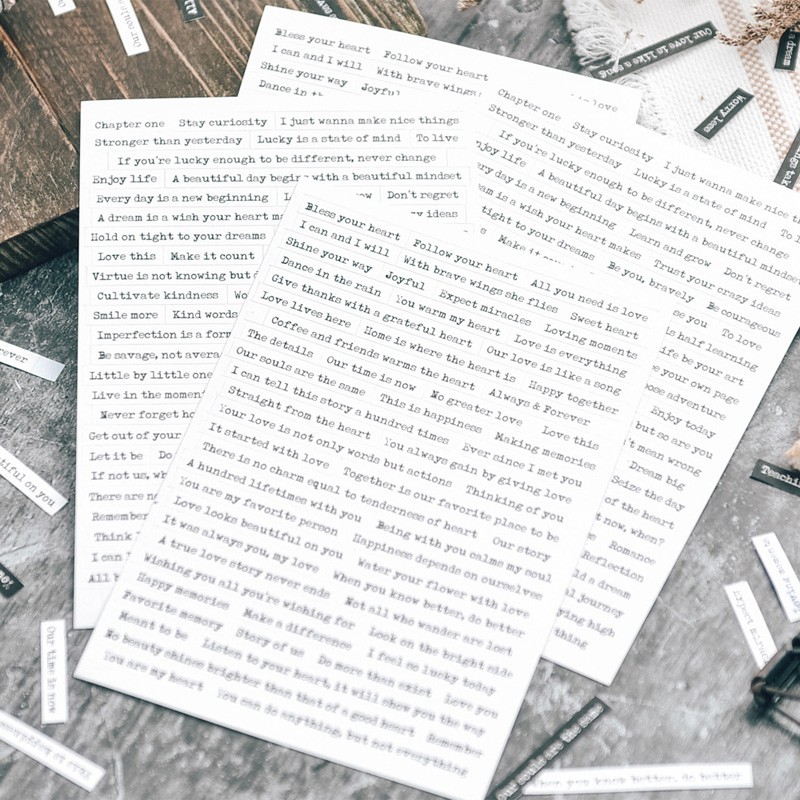 Bless your heart Follow your heart
I can and I will With brave wings
Shine your way Joyful
Dance in
Chapter one Stay curiosity I just wanna make nice things
Stronger than yesterday Lucky is a state of mind To live
If you're lucky enough to be different, never change
Enjoy life A beautiful day begins with a beautiful mindset
Every day is a new beginning Don't regret
A dream is a wish your heart ideas
Hold on tight to your dreams
Love this Make it count
Virtue is not knowing but
Cultivate kindness
Smile more Kind words
Imperfection is a form
Be savage, not
Little by little one
Live in the
Never forget
Get out of your
Let it be Do
If not us,
There are
Remember
Think
I can
All
Chapter one Stay curiosity I just wanna make nice
Stronger than yesterday Lucky is a state of mind To
If you're lucky enough to be different, never change
Enjoy life A beautiful day begins with a beautiful mindset
Every day is a new beginning Learn and grow Don't regret
dream is a wish your heart makes Trust your crazy ideas
tight to your dreams Be you, bravely Be courageous
Make it you To love
is half learning
life be your art
your own page
adventure
Enjoy today
but so are you
mean wrong
Dream big
Seize the day
of the heart
now, when?
Romance
Reflection
a dream
journey
high
thing
Bless your heart Follow your heart All you need is love
I can and I will With brave wings she flies Sweet heart
Shine your way Joyful Expect miracles Loving moments
Dance in the rain You warm my heart Love is everything
Give thanks with a grateful heart Our love is like a song
Love lives here Home is where the heart is Happy together
Coffee and friends warms the heart Always & Forever
The details Our time is now No greater love Love this
Our souls are the same This is happiness Making memories
I can tell this story a hundred times Ever since I met you
Straight from the heart You always gain by giving love
Your love is not only words but actions Thinking of you
It started with love Together is our favorite place to be
There is no charm equal to tenderness of heart Our story
A hundred lifetimes with you Being with you calms my soul
You are my favorite person Happiness depends on ourselves
Love looks beautiful on you Water your flower with love
It was always you, my love When you know better, do better
A true love story never ends Not all who wander are lost
Wishing you all you're wishing for Look on the bright side
Happy memories Make a difference I feel so lucky today
Favorite memory Story of us Do more than exist Love you
Meant to be Listen to your heart, it will show you the way
No beauty shines brighter than that of a good heart Remember
You are my heart You can do anything, but not everything
Our love is like a song
Worry less
a dream
Teaching
Our time is now
Our souls are the same
When you know better, do better